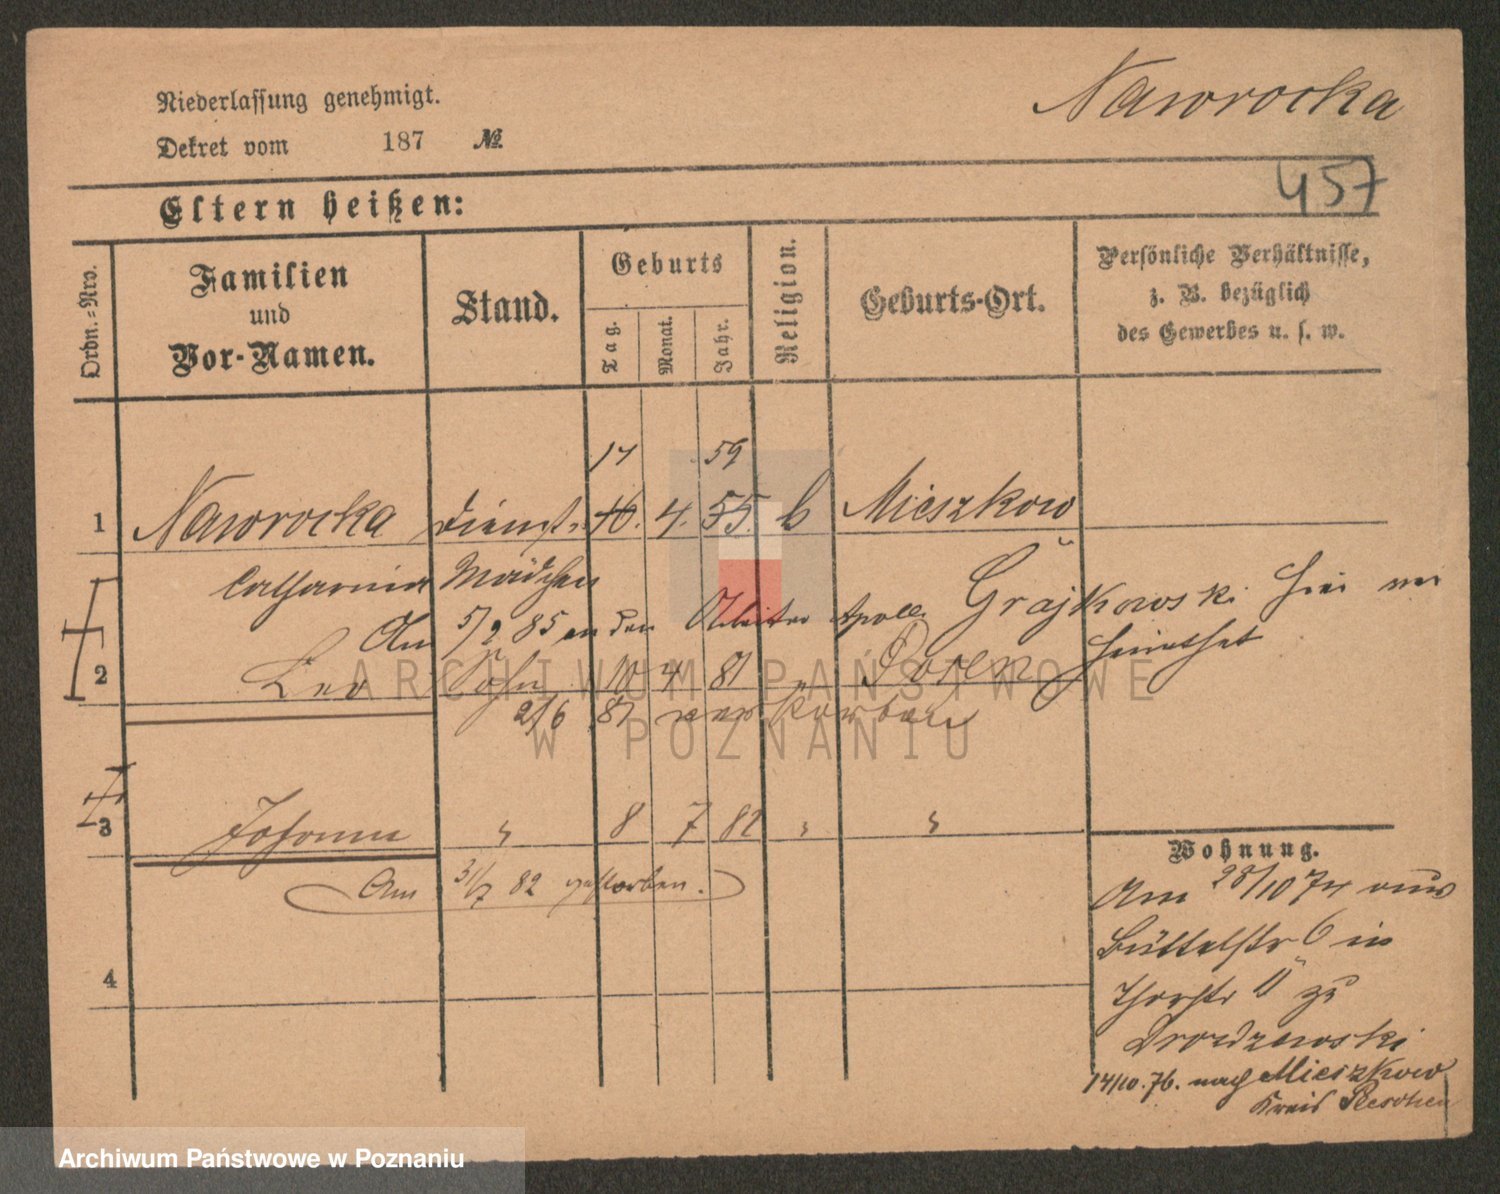 Niederlassung genehmigt.
Nawrocka
Dekret vom 187 №
457
Eltern heißen:
Ordn.-Nro.
Familien
und
Vor-Namen.
Stand.
Geburts
Tag.
Monat.
Jahr.
Religion.
Geburts-Ort.
Persönliche Verhältnisse,
z. B. bezüglich
des Gewerbes u. s. w.
17 59
1 Nawrocka Dienst- 16. 4. 55. k Mieszkow
Catharina Mädchen
Am 5/2 85 an den Arbeiter Apoll. Grajkowski hier ver
heirathet
2 Leo Sohn 10 4 81 " Posen
2/6 81 verstorben
3 Johann " 8 7 82 " "
Am 31/7 82 gestorben.
4
Wohnung.
Am 28/10 74 aus
Büttelstr 6 in
Thorstr 11 zu
Drowdzewski
14/10. 76. nach Mieszkow
Kreis Pleschen
ARCHIWUM PAŃSTWOWE
W POZNANIU
Archiwum Państwowe w Poznaniu